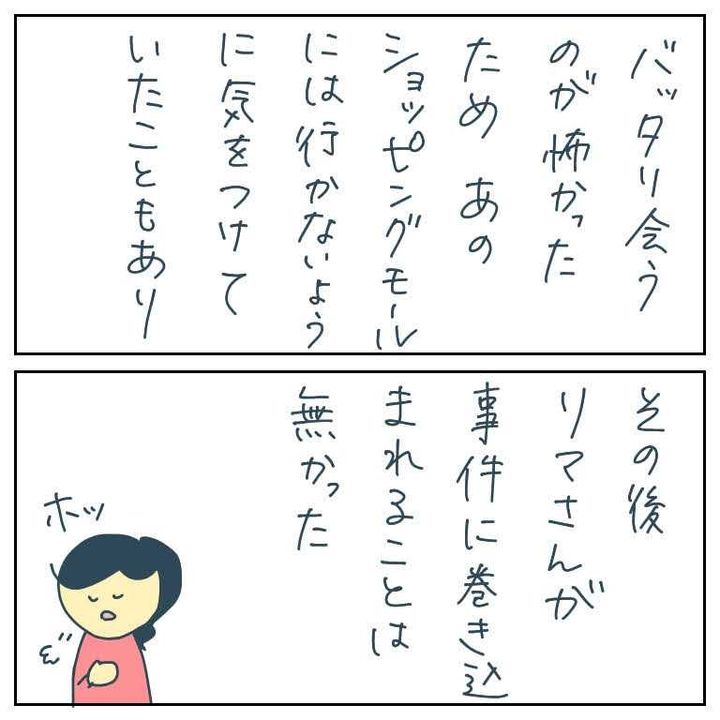 バッタリ会う
のが怖かった
ため あの
ショッピングモール
には行かないよう
に気をつけて
いたこともあり
その後
リマさんが
事件に巻き込
まれることは
無かった
ホッ